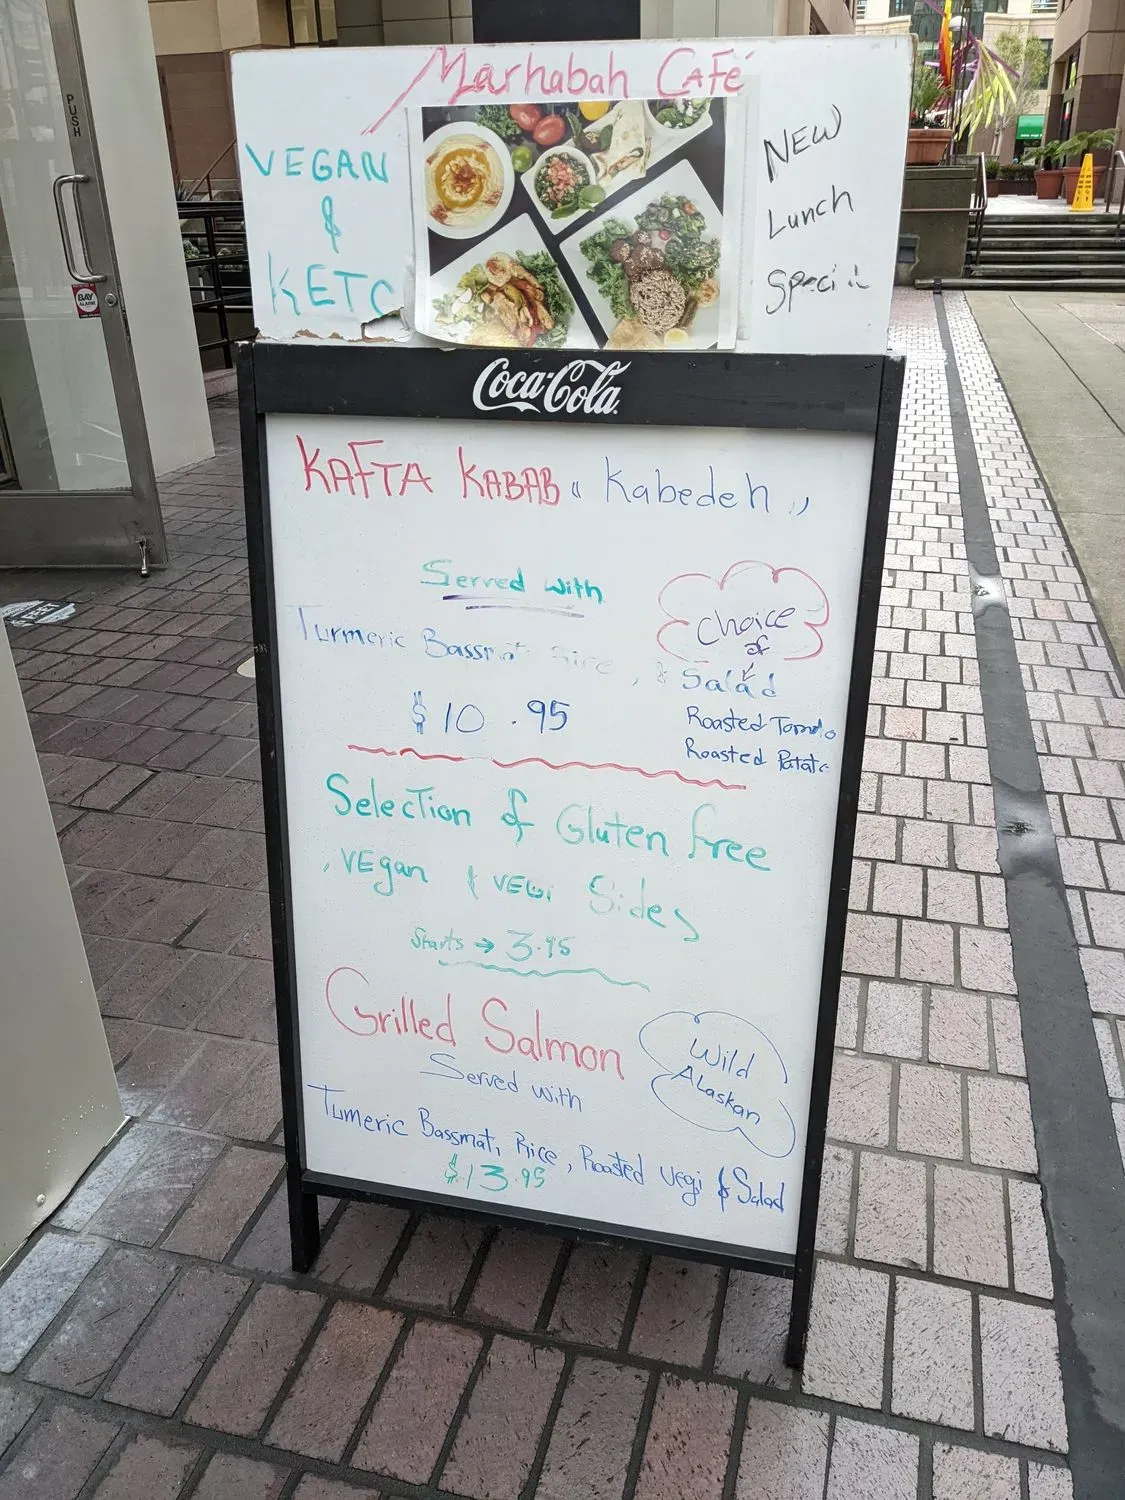 Marhabah CAFé
VEGAN
&
KETO
NEW
Lunch
Special
PUSH
BAY
ALARM
Coca-Cola
KAFTA KABAB " Kabedeh "
Served with
Turmeric Bassmat Rice, & Salad
$10.95
Choice
of
Roasted Tomato
Roasted Patato
Selection of Gluten free
, VEgan & VEGi Sides
Starts → 3.95
Grilled Salmon
Wild
ALaskan
Served with
Turmeric Bassmat, Rice, Roasted vegi & Salad
$13.95